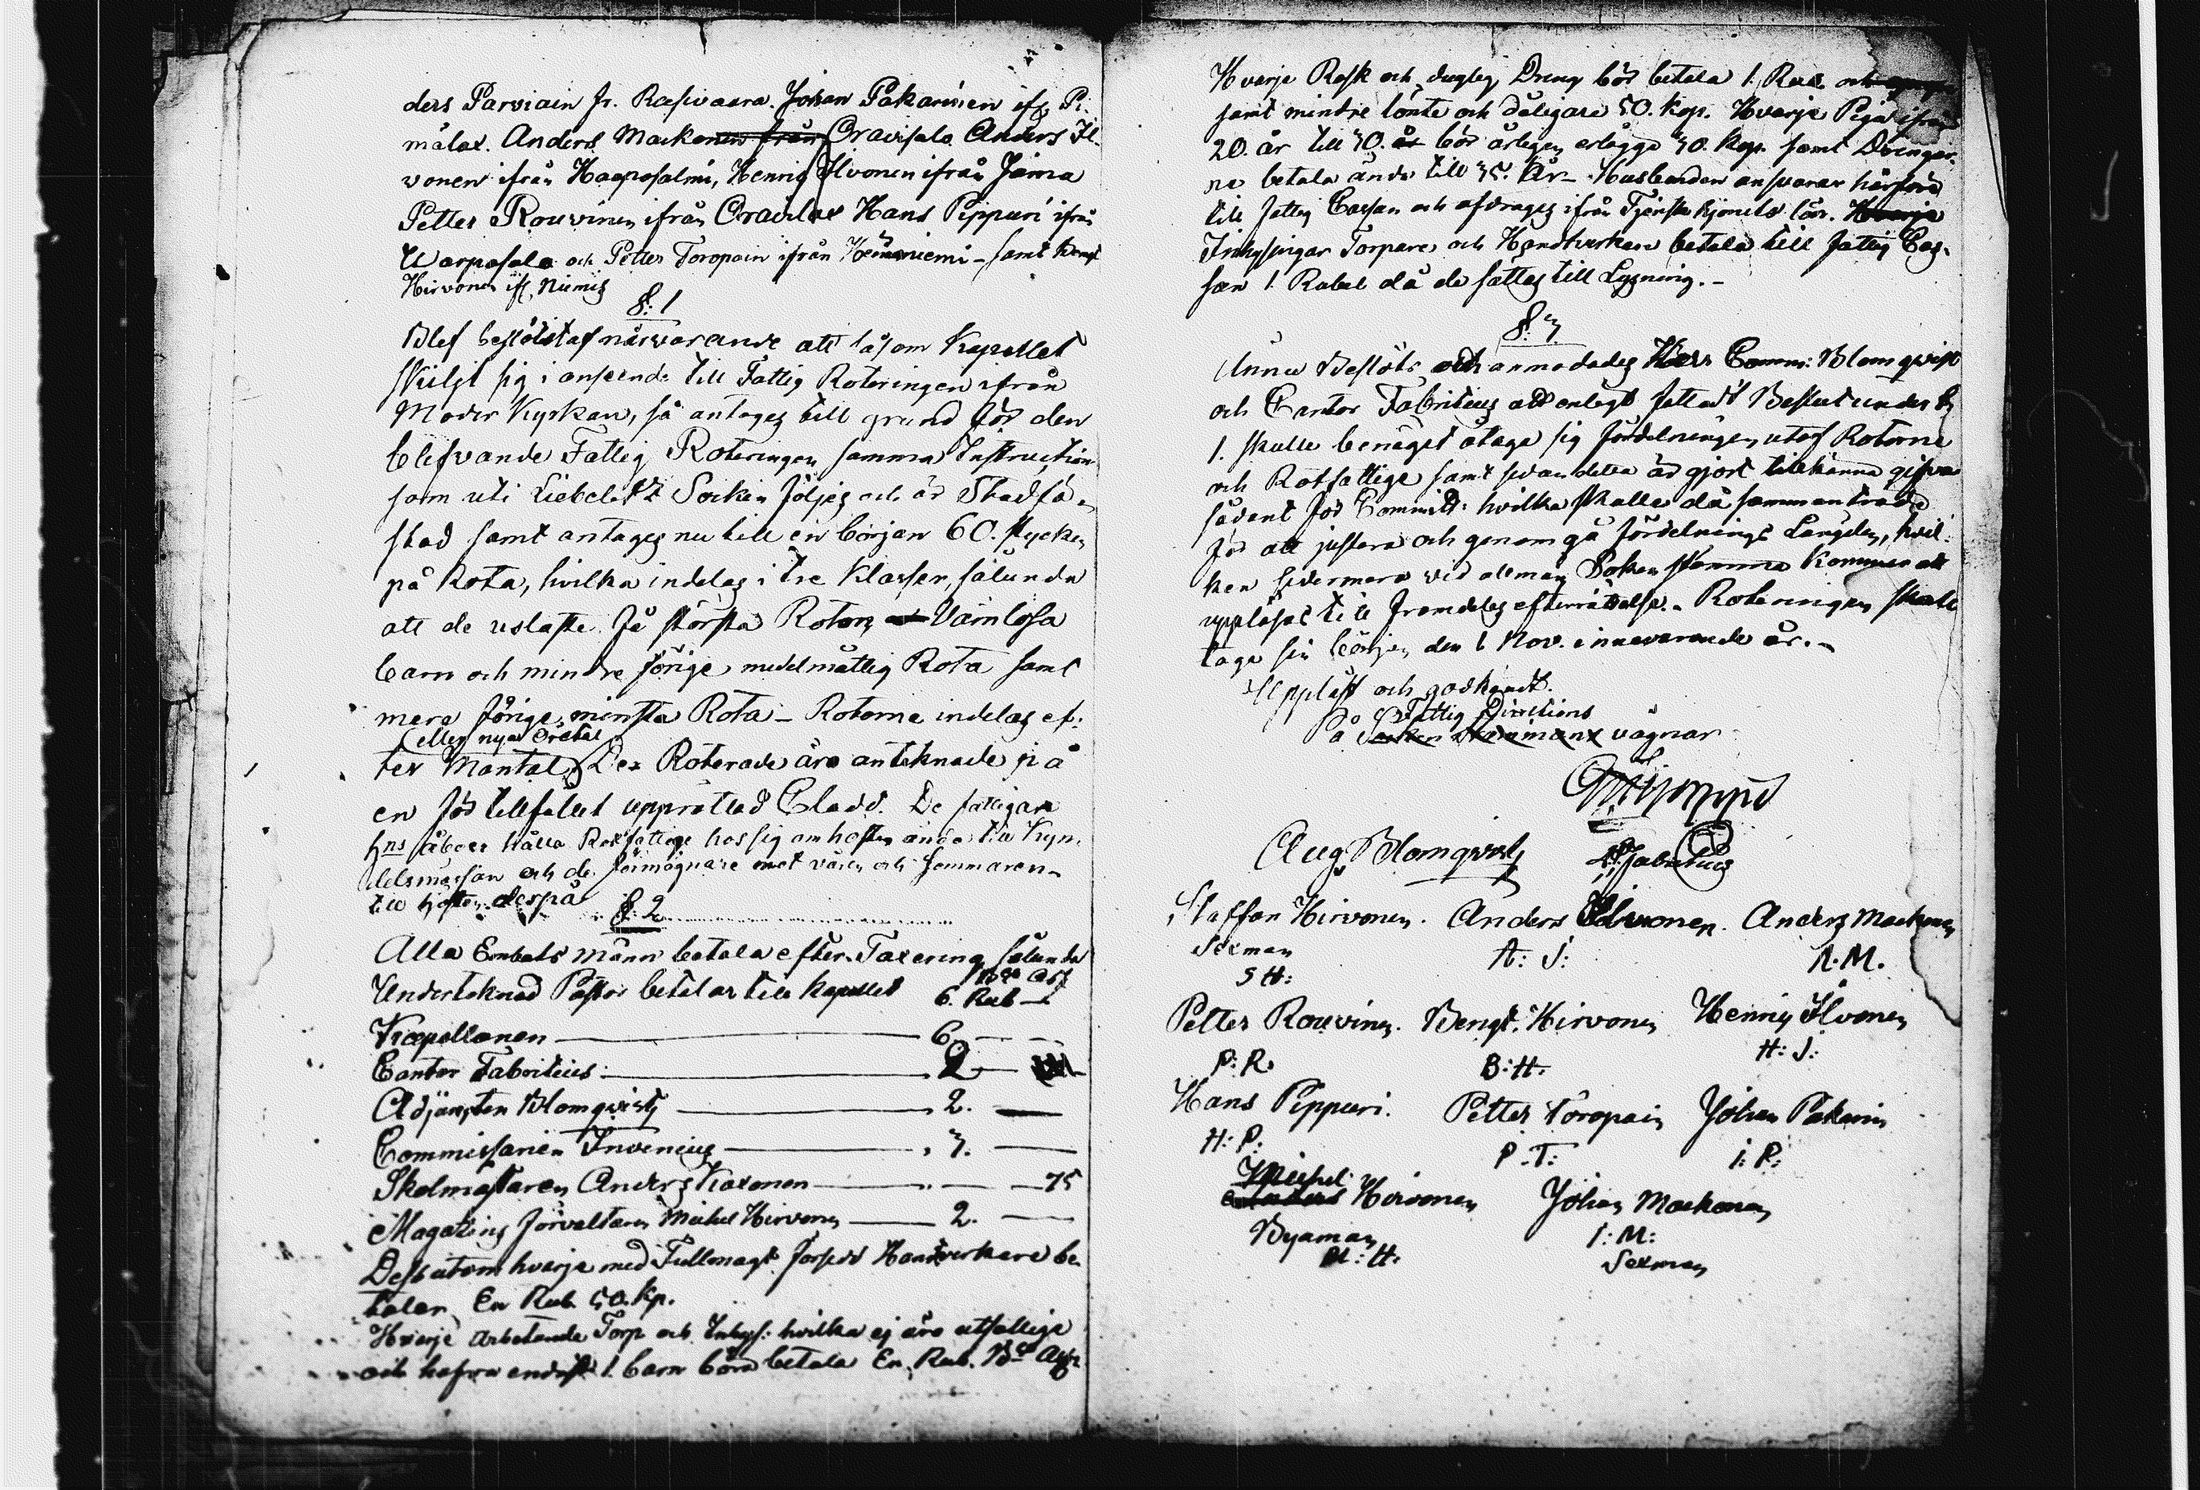 ders Parviain fr. Rasivaara. Johan Pakarinen ifr. Pi-
målax. Anders Mackonen från Oravisalo Anders Il-
vonen ifrån Haapasalmi, Henric Ilvonen ifrån Jäma
Petter Rouvinen ifrån Oravilax Hans Pippuri ifrån
Warpasalo och Petter Toropain ifrån Hernäniemi – samt Bengt
Hirvonen ifr. Niemis
§: 1
Blef beslötit af närvarande att såsom Kapellet
skiljt sig i anseende till Fattig Roteringen ifrån
Moder Kyrkan, så antages till grund för den
blifvande Fattig Roteringen samma Instruction
som uti Libelitz Socken följes och är Stadfä-
stad samt antages nu till en början 60. stycken
på Rota, hvilka indelas i tre Klasser, sålunda
att de uslaste få största Roten, Värnlösa
barn och mindre förige medelmåttig Rota samt
mera förige, minsta Rota – Roterne indelas ef-
eller nya öretal
ter Mantal. De Roterade äro anteknade på
en för tillfället upprättad Cladd. De fattigare
åboer hålla Rotfattige hos sig om hösten ända till Kyn-
delsmässan och de förmögnare emot våren och sommaren
till hösten derpå
§: 2
Alla Embets männ betala efter Taxering sålunda
Underteknad Pastor betalar till Kapellet 6. Rub
Kapellanen 6.
Cantor Fabritius 2
Adjuncten Blomqvist 2.
Commissarien Invenius 3.
Skolmästaren Anders Kaxonen 75
Magazins förvaltaren Michel Hirvonen 2.
Dessutom hvarje med Fullmagt försedd Handtverkare be-
talar En Rub. 50. Kp.
Hvarje arbetande Torp och Inhys: hvilka ej äro utfattige
och hafva endast 1. barn böra betala En Rub. Bco Ass
Hvarje Rask och duglig Dräng bör betala 1. Rub.
samt mindre lönte och dåligare 50. Kop. Hvarje Piga ifrån
20. år till 40. år bör årligen erlägga 40. Kop. samt Drängar-
ne betala ända till 45. År – Husbonden ansvarar härföre
till Fattig Cassan och afdrages ifrån Tjenste hjonets lön. Hvarje
Inhysingar Torpare och Handtverkare betala till Fattig Cas-
san 1. Rubel då de sättes till Lysning. –
§: 3
Ännu Beslöts och anmodades Herr Comm: Blomqvist
och Cantor Fabritius att enligt fattadt Beslut under §
1. skulle benäget åtaga sig fördelningen utaf Roterne
och Rotfattige samt sedan detta är gjort tillkänna gifva
sådant för Committe: hvilka skulle då sammanträda
för att justera och genomgå fördelnings Längden, hvil-
ken sidermera vid allmän Soken Stämma Kommer att
uppläsas till framdeles efterrättelse. – Roteringen skall
taga sin början den 1 Nov. innevarande år. –
Uppläst och godkändt.
Fattig Directions
På Socken Stämmans vägnar
Aug. Blomqvist Fabritius
Staffan Hirvonen. Anders Ilvonen. Anders Mackonen
Sexman A: I: A. M.
S H:
Petter Rouvinen. Bengt. Hirvonen Henric Ilvonen
P: R. B: H. H: I:
Hans Pippuri. Petter Toropain Johan Pakarin
H: P. P. T: I: P:
Michel
Anders Hirvonen Johan Mackonen
Byaman I: M:
M: H. Sexman